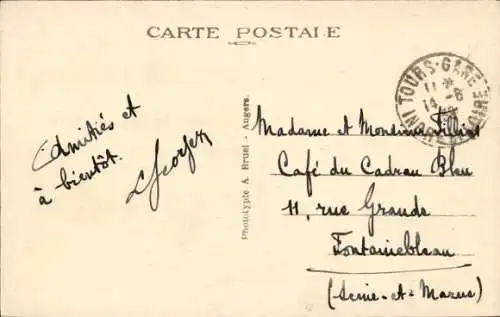 CARTE POSTALE
TOURS-GARE
11 *
14 -6
INDRE ET LOIRE
Amitiés et
à bientôt.
Phototypie A. Bruel - Angers.
Madame et Monsieur
Café du Cadran Bleu
11, rue Grande
Fontainebleau
(Seine-et-Marne)